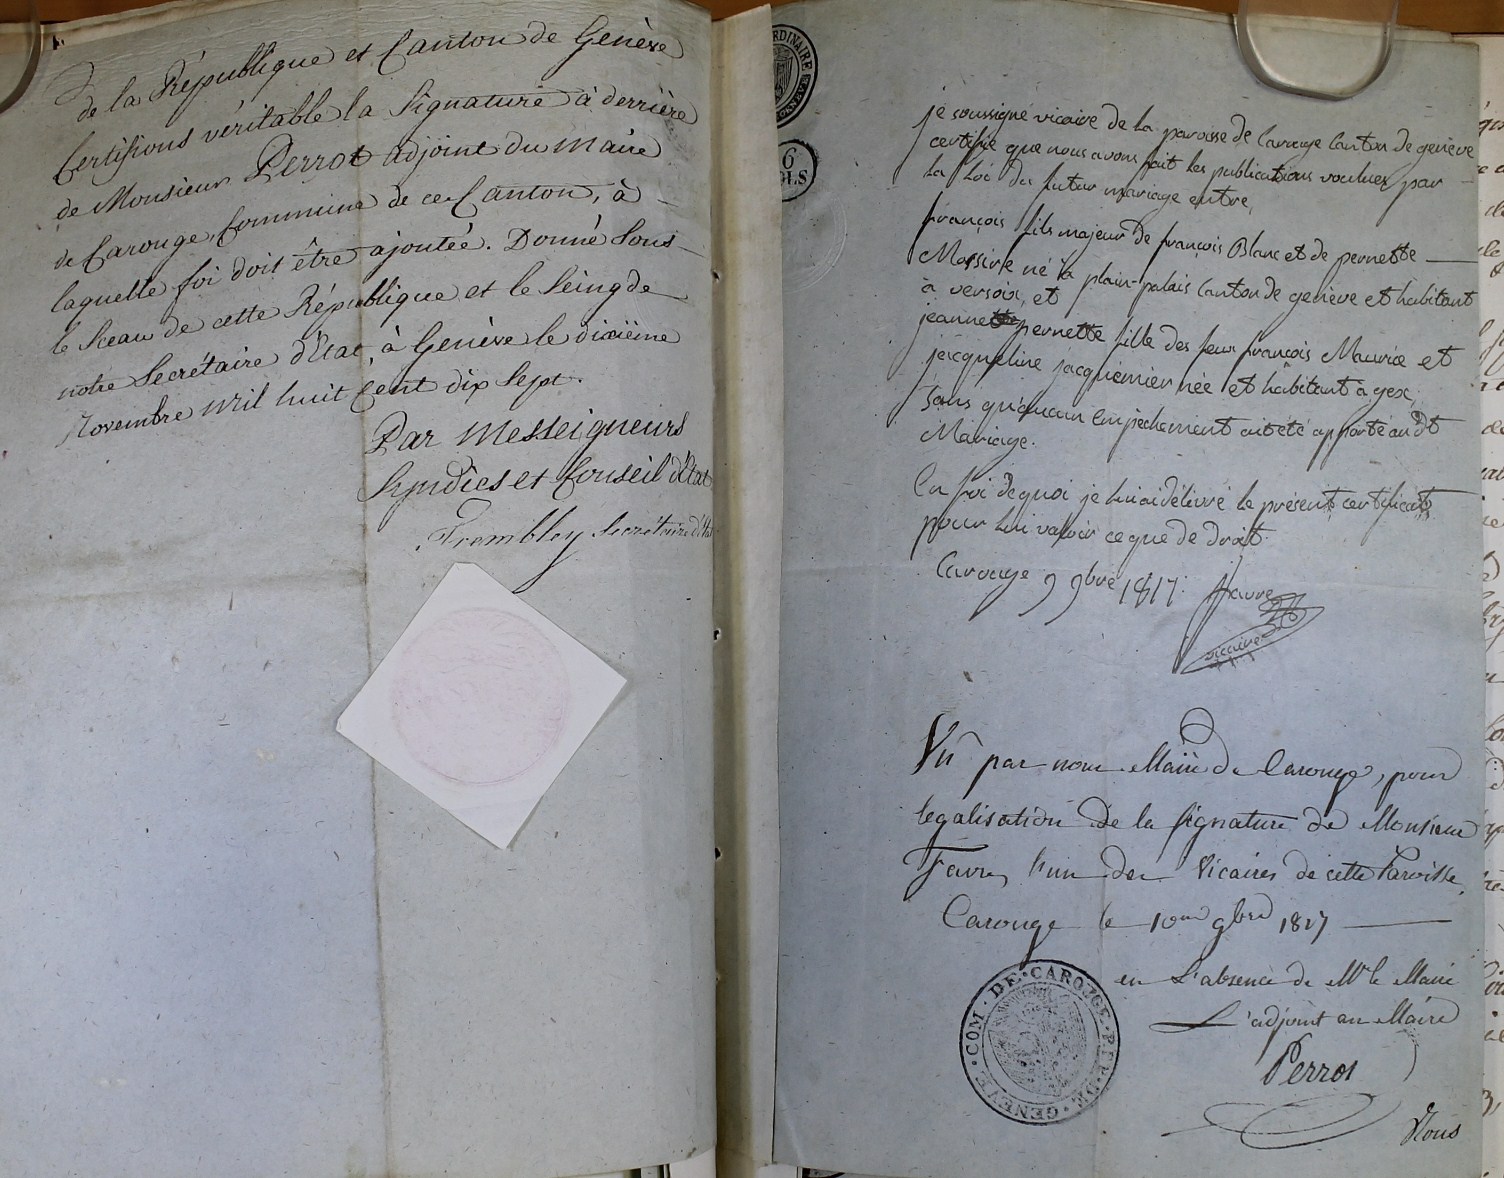 de la République et Canton de Genève
Certifions véritable la Signature à derrière
de Monsieur Perrot adjoint du Maire
de Carouge, Commune de ce Canton, à
laquelle foi doit être ajoutée. Donné sous
le Sceau de cette République et le Seing de
notre Secrétaire d'Etat, à Genève le dixième
Novembre mil huit Cent dix Sept.
Par Messeigneurs
Syndics et Conseil d'Etat
Trembley Secrétaire d'Etat
je soussigné vicaire de la paroisse de Carouge Canton de genève
certifie que nous avons fait les publications voulues par
la Loi du futur mariage entre,
françois fils majeur de françois Blanc et de pernette
né à plain-palais Canton de genève et habitant
à versoix, et
jeannette pernette fille des feux françois Maurice et
jacqueline jacquemier née et habitant à gex,
Sans qu'aucun Empêchement ait été apporté au dt
Mariage.
En foi de quoi je lui ai délivré le présent certificat
pour lui valoir ce que de droit.
Carouge 9 9bre 1817. favre
vicaire
Vu par nous Maire de Carouge, pour
legalisation de la Signature de Monsieur
Favre, l'un des Vicaires de cette Paroisse.
Carouge le 10me 9bre 1817
en L'absence de Mr le Maire
L'adjoint au Maire
Perrot
Nous
COM · DE · CAROUGE · REP · DE · GENEVE ·